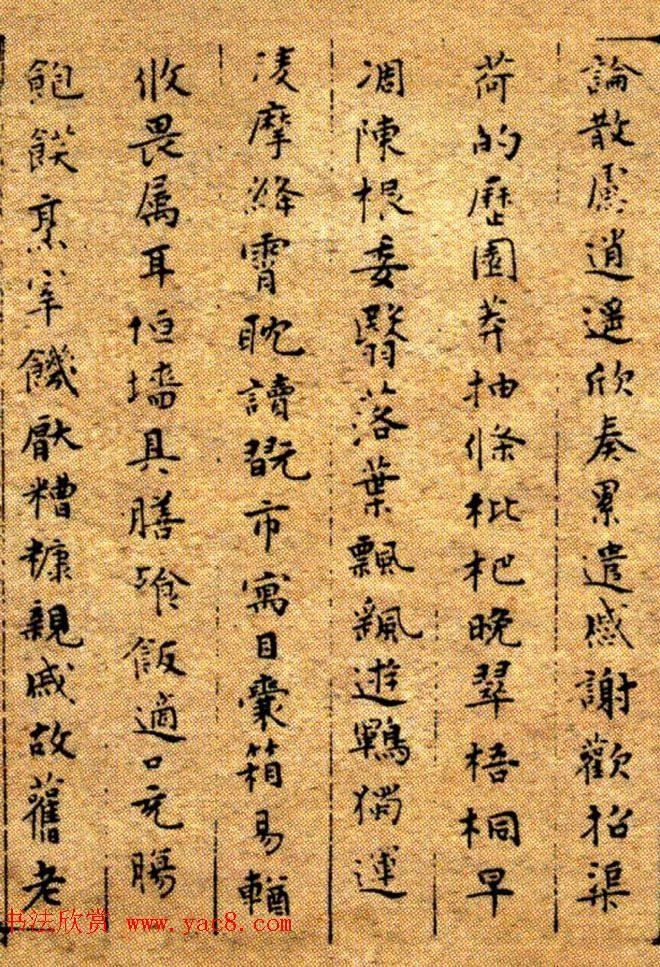 論散慮逍遥欣奏累遣慼謝歡招渠
荷的歷園莽抽條枇杷晚翠梧桐早
凋陳根委翳落葉飄飖遊鵾獨運
凌摩絳霄耽讀翫市寓目囊箱易輶
攸畏属耳垣墻具膳飡飯適口充腸
飽飫烹宰饑厭糟糠親戚故舊老
书法欣赏 www.yac8.com